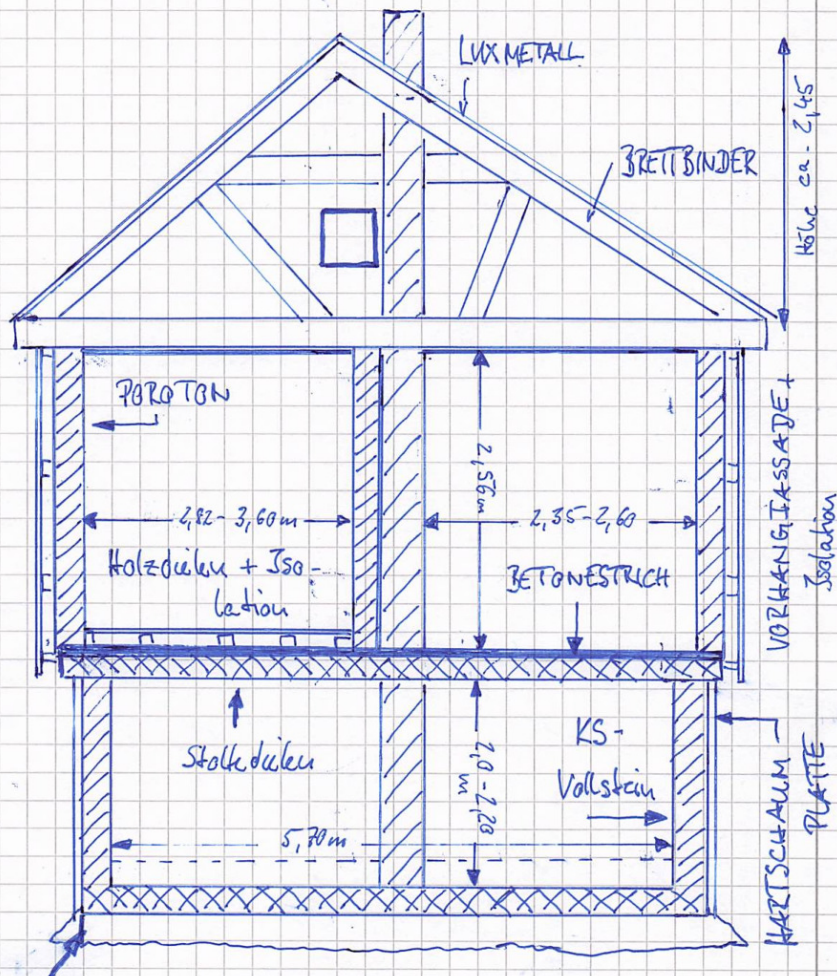 LUXMETALL
BRETTBINDER
Höhe ca. 2,45
POROTON
2,56m
2,82-3,60m
2,35-2,60
Holzdielen + Iso-
lation
BETONESTRICH
VORHANGFASSADE +
Isolation
Stoltedielen
2,0-2,20
m
KS-
Vollstein
5,70m
HARTSCHAUM-
PLATTE